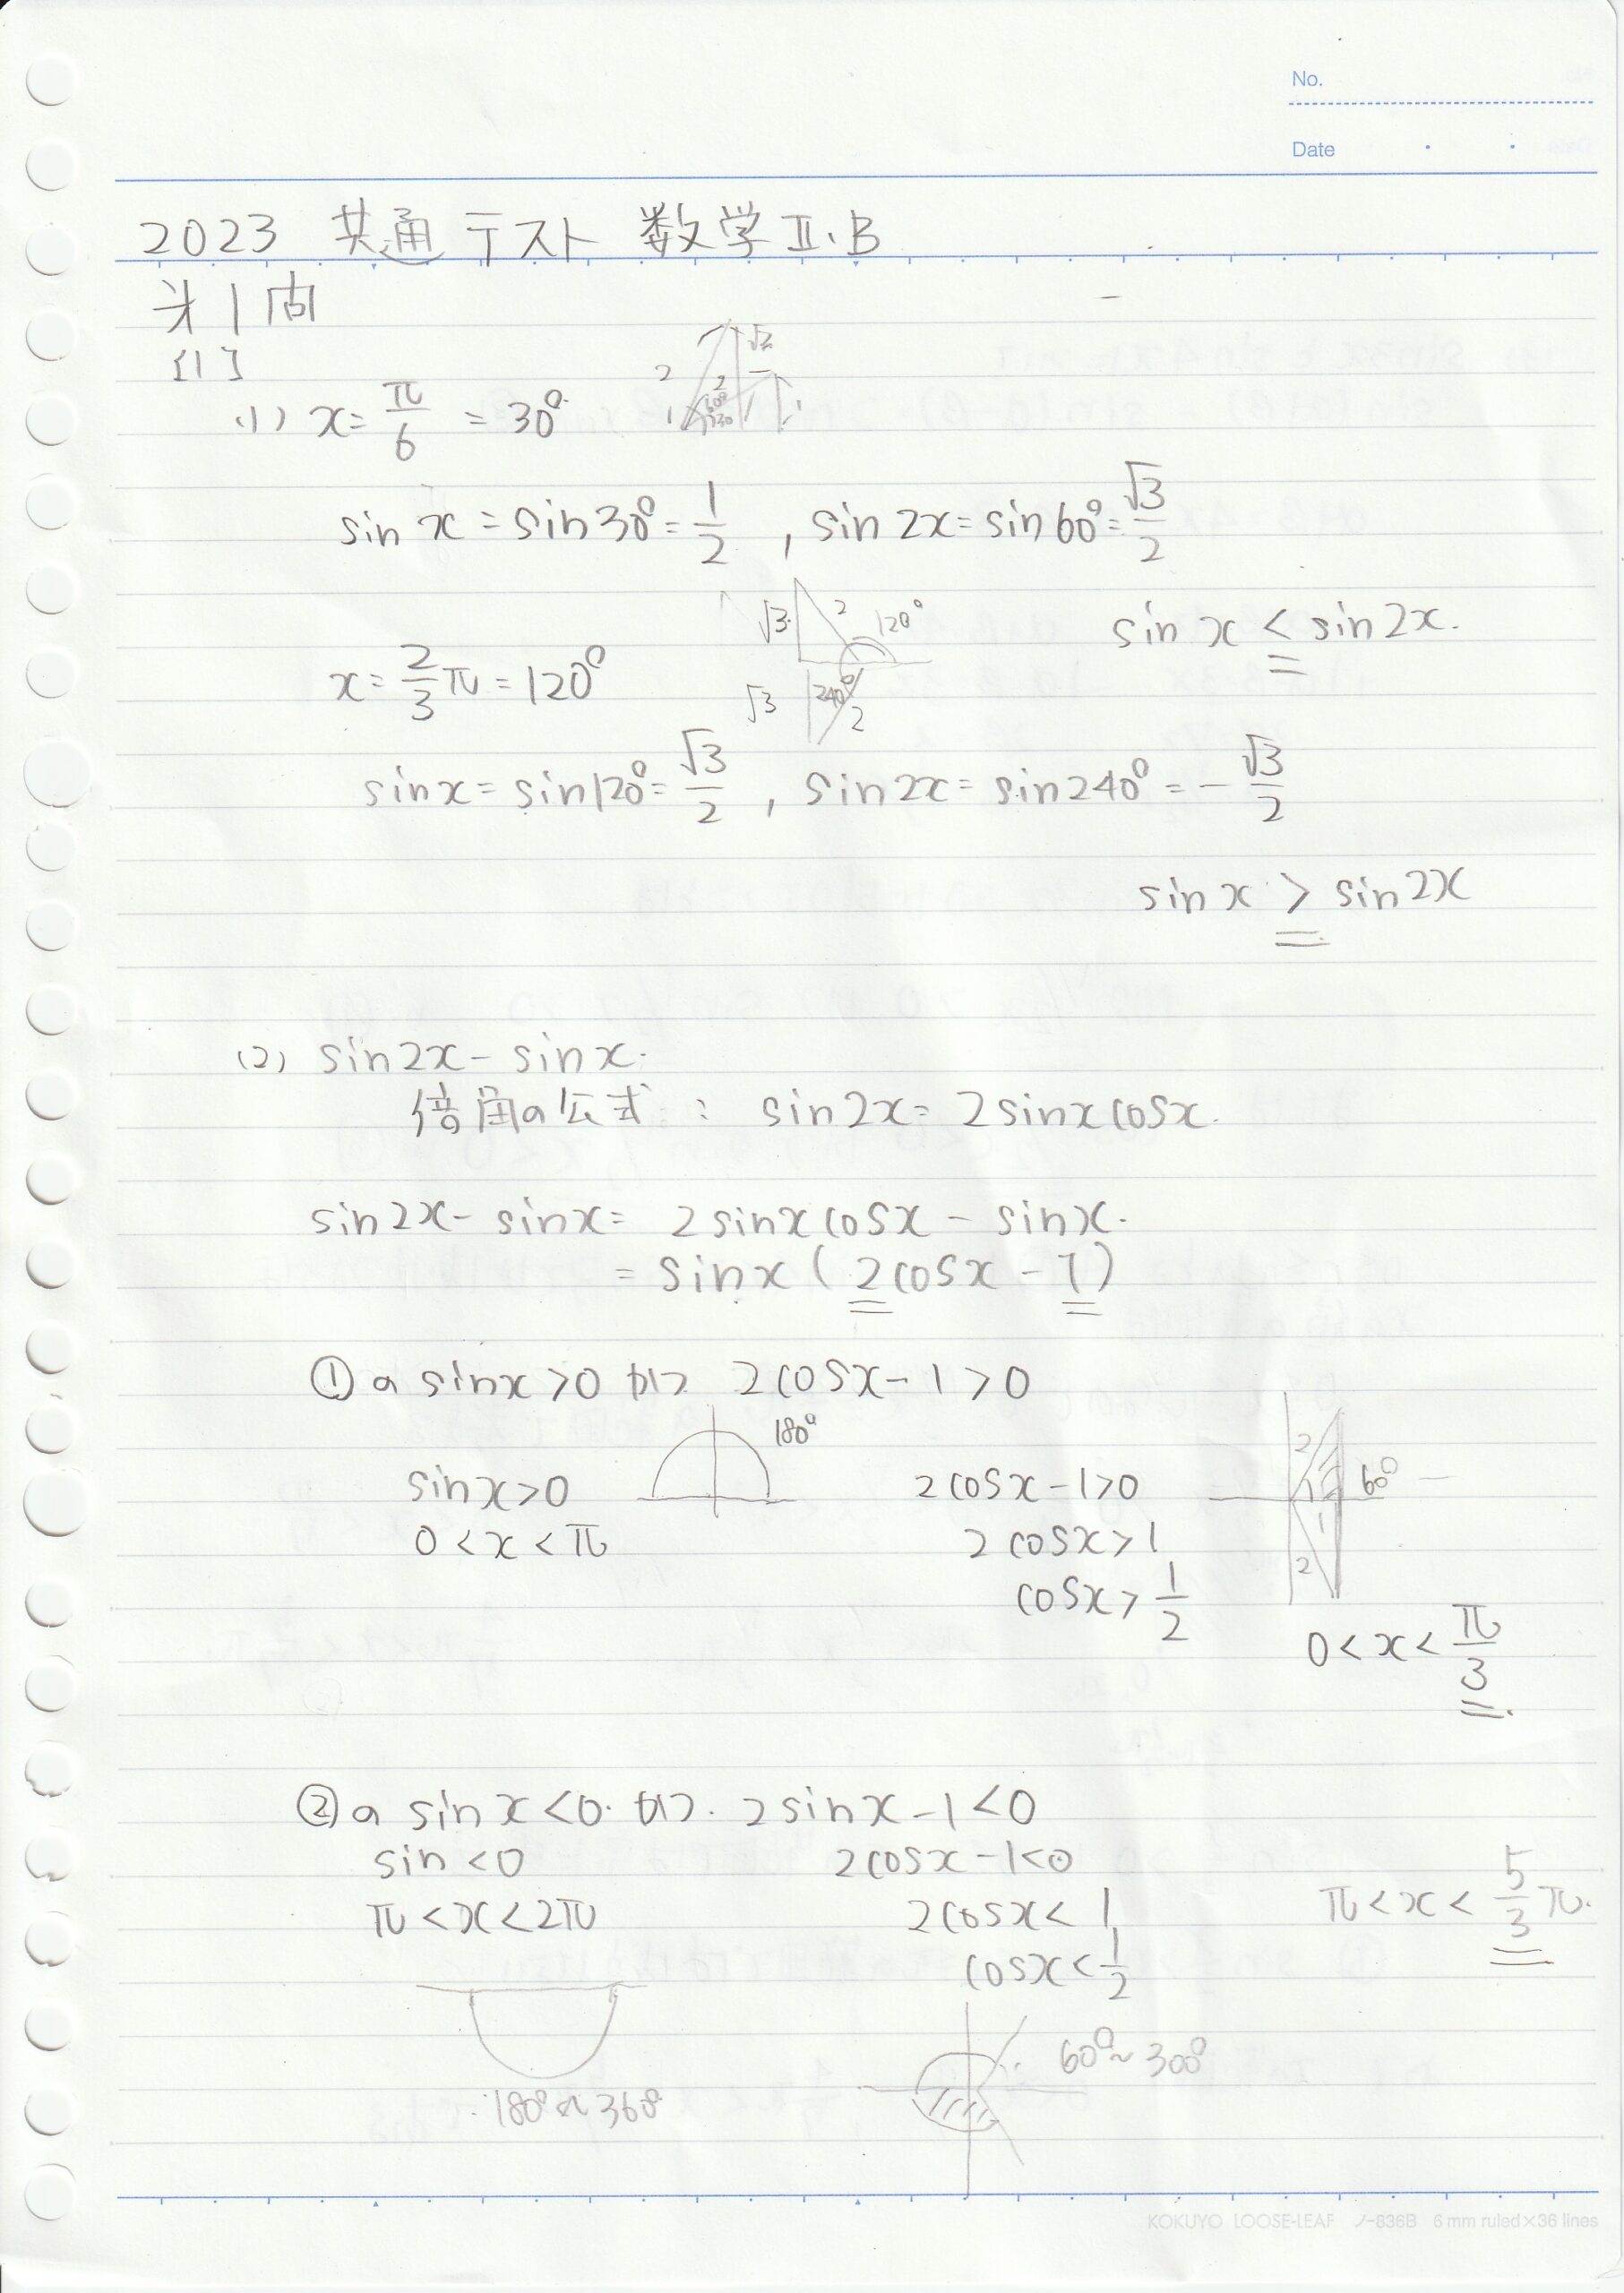 No.
Date
2023 共通テスト 数学Ⅱ・B
第1問
[1]
(1) x = π/6 = 30°
2 √3 2 60° 30° 1 1
sin x = sin 30° = 1/2 , sin 2x = sin 60° = √3/2
√3 2 120°
sin x < sin 2x.
x = 2/3 π = 120°
√3 240° 2
sin x = sin 120° = √3/2 , sin 2x = sin 240° = - √3/2
sin x > sin 2x
(2) sin 2x - sin x.
倍角の公式 : sin 2x = 2 sin x cos x.
sin 2x - sin x = 2 sin x cos x - sin x.
= sin x ( 2 cos x - 1 )
① の sin x > 0 かつ 2 cos x - 1 > 0
180°
sin x > 0
0 < x < π
2 cos x - 1 > 0
2 cos x > 1
cos x > 1/2
2 1 60° 1 2
0 < x < π/3
② の sin x < 0. かつ. 2 sin x - 1 < 0
sin < 0
π < x < 2π
2 cos x - 1 < 0
2 cos x < 1
cos x < 1/2
π < x < 5/3 π.
180° ~ 360°
60° ~ 300°
KOKUYO LOOSE-LEAF ノ-836B 6 mm ruled×36 lines